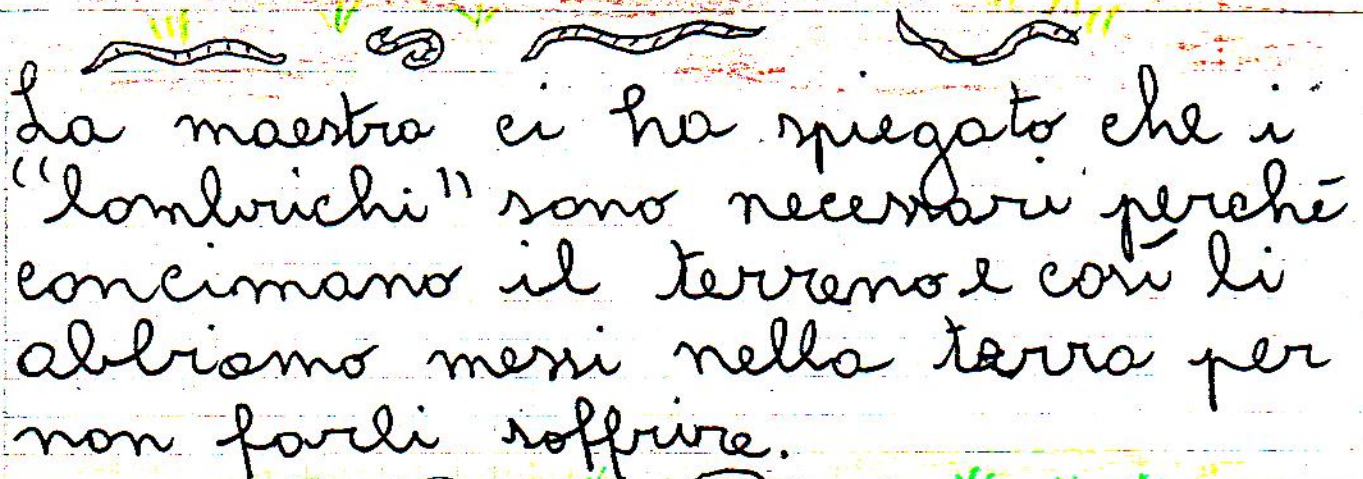 La maestra ci ha spiegato che i
"lombrichi" sono necessari perchē
concimano il terreno e così li
abbiamo messi nella terra per
non farli soffrire.